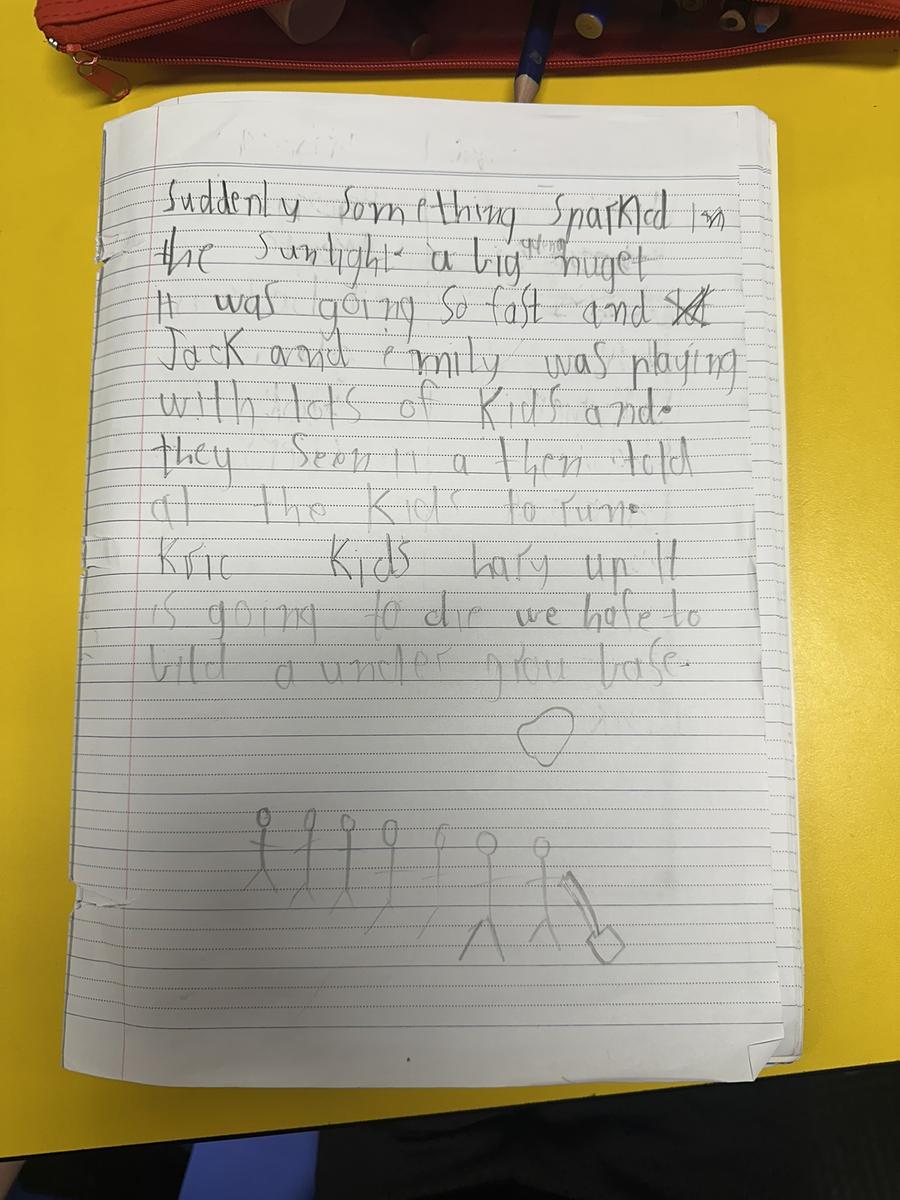 Suddenly something sparkled in
the sunlight a big nuget
It was going so fast and
Jack and emily was playing
with lots of Kids and.
they seen it a then told
al the Kids to run.
Kids hary up It
is going to die we hafe to
bild a under grou base.